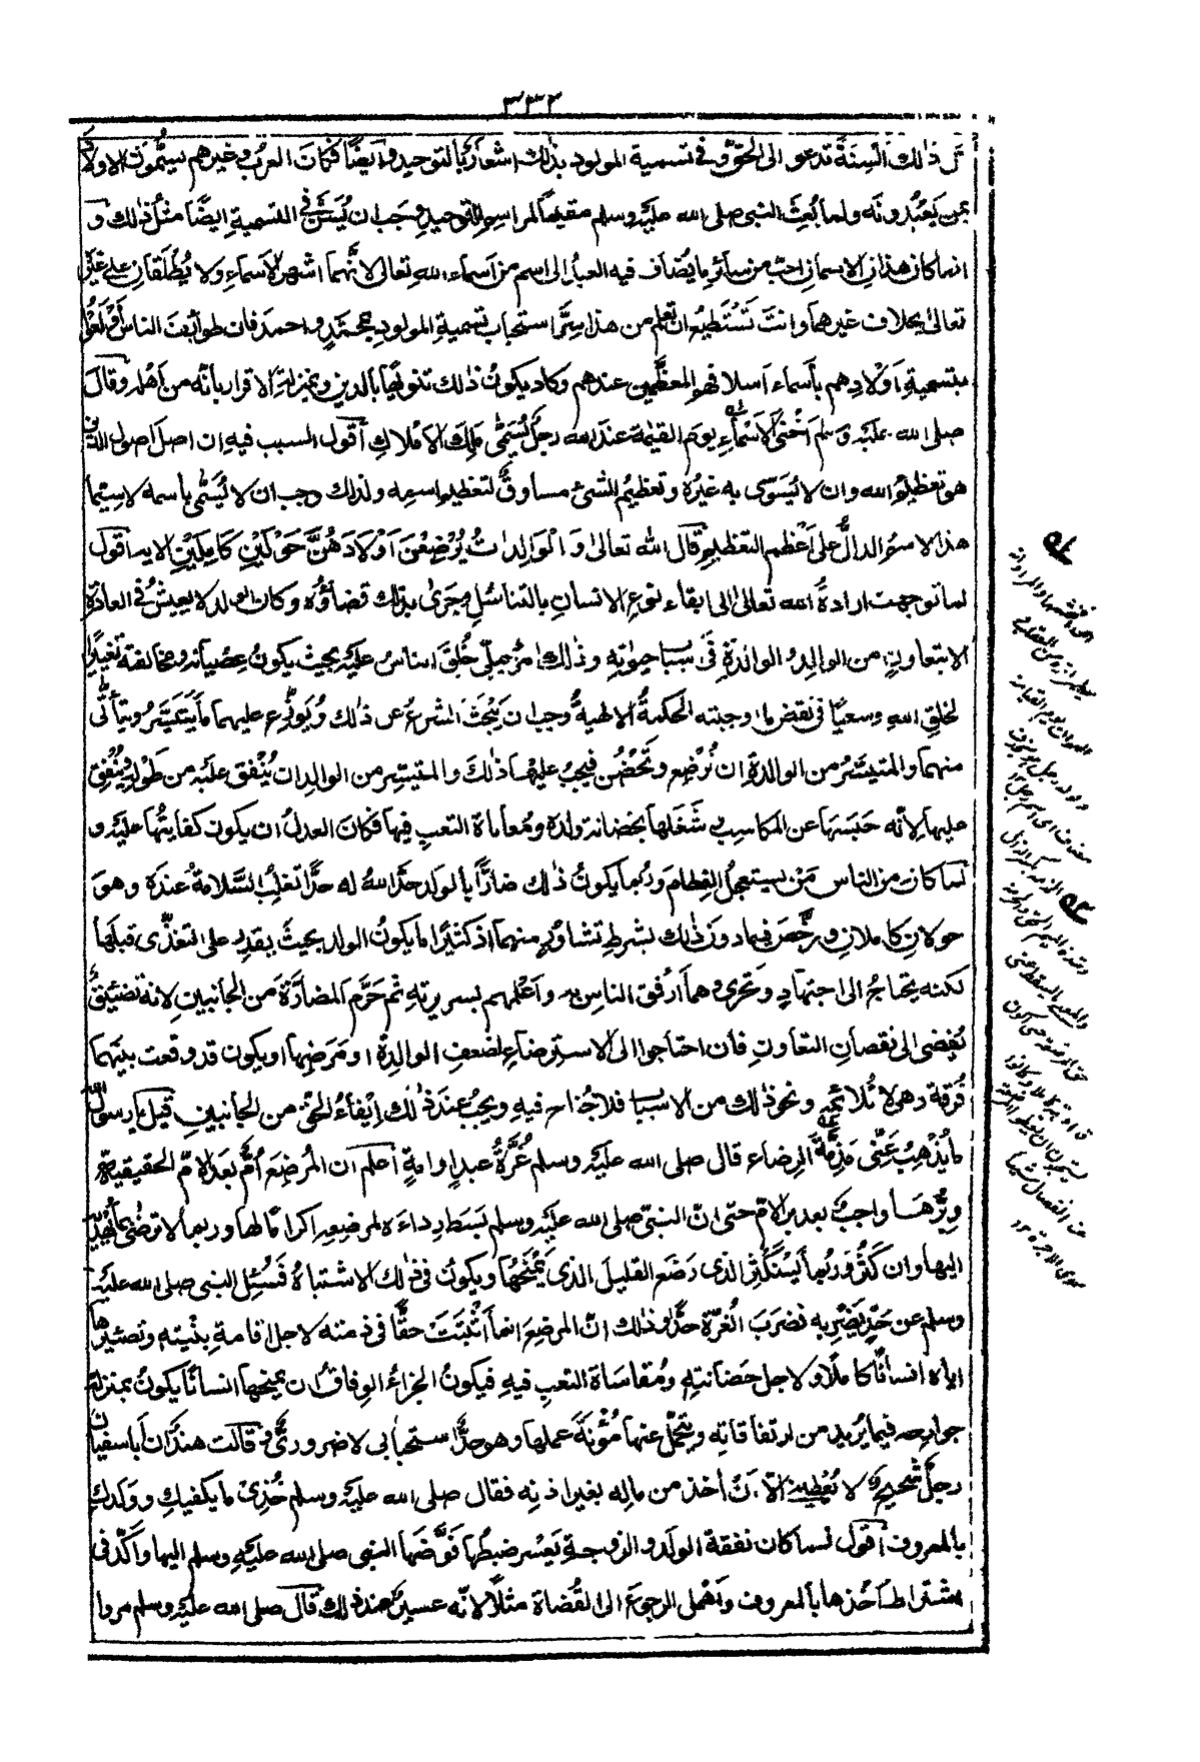 ٣٣٢
ذٰلك السنة تدعو الى الحق فى تسمية المولود بذلك اشعار بالتوحيد وايضًا فكانَ العرب وغيرهم يسمّون الاولاد
بمن يَعبُدونه ولما بُعِثَ النبى صلى الله عليه وسلم مقيمًا لمراسم التوحيد وجَب ان يُسَنّ فى التسمية ايضًا مثل ذلك و
انما كان هذان الاسمان احب من سائر ما يضاف فيه العبد الى اسم من اسماء الله تعالى لانهما اشهر الاسماء ولا يُطلقان على غيره
تعالى بخلاف غيرهما وانتَ تَستطيعُ ان تعلم من هذا سِرّ استحباب تسمية المولود بمحمدٍ واحمد فان طوائف الناس اولعوا
بتسمية اَولادِهم بأسماء اَسلافهم المعظَّمين عندهم وكاد يكونُ ذلك تنويهًا بالدين وبمنزلة الاقرار بانه من اهله وقال
صلى الله عليه وسلم اَخنَى الاَسماءِ يوم القيٰمة عند الله رجل يُسمّٰى مَلِك الاَملاكِ اَقول السبب فيه ان اصل اصول الدين
هو تعظيم الله وان لا يُسوى به غيرُه وتعظيمُ الشئ مساوق لتعظيم اسمه ولذلك وجب ان لا يُسمّٰى باسمه لاسيما
هذا الاسم الدالّ على اَعظم التعظيم قال الله تعالى وَالْوَالِدَاتُ يُرْضِعْنَ اَوْلَادَهُنَّ حَوْلَيْنِ كَامِلَيْنِ الاية اقول
لما توجهت ارادةُ الله تعالى الى ابقاء نوع الانسان بالتناسُل وجَرىٰ بذلك قضاؤه وكان الولد لا يعيشُ فى العادة
الا بتعاون من الوالد والوالدة فى اسباب حيوته وذلك امر جبلّى خُلق الناسُ عليه بحيث يكونُ عصيانه ومخالفته تغييرًا
لخلق الله وسعيًا فى نقض ما اوجبته الحكمة الالهية وجب ان يَبحث الشرع عن ذلك ويُوزّع عليهما ما يَتيسّرُ ويتأتّى
منهما والمتيسّرُ من الوالدة ان تُرضع وتَحضُن فيجبُ عليها ذلك والمتيسّر من الوالد ان يُنفق عليه من طَوله ويُنفق
عليها لانه حَبَسَها عن المكاسب وشَغَلها بحضانة ولده ومُعاناة التعب فيها فكان العدلُ ان يكون كفايتُها عليه و
لما كان من الناس مَن يستعجلُ الفطام وربما يكونُ ذلك ضارًّا بالولد حدّ الله له حدًّا تغلبُ السّلامةُ عنده وهو
حولان كاملان ورخّصَ فيما دون ذلك بشرط تشاوُرٍ منهما اذ كثيرًا ما يكونُ الولد بحيث يقدر على التغذّى قبلها
لكنه يحتاجُ الى اجتهادٍ وتحرّ وهما اَرفق الناس به واَعلمهم بسريرته ثم حَرّم المضارّة من الجانبين لانه تضييقٌ
يُفضى الى نقصان التعاون فان احتاجوا الى الاسترضاع لضعف الوالدة او مَرضها او يكون قد وقعت بينهما
فُرقة وهى لا تُلائمه ونحو ذلك من الاسباب فلا جُناح فيه ويجبُ عند ذلك اِيفاءُ الحق من الجانبين قيل يا رسول الله
ما يُذهِبُ عنّى مَذِمّةَ الرضاع قال صلى الله عليه وسلم غُرّةُ عبدٍ او امةٍ اَعلم ان المُرضع اُمّ بعد الامّ الحقيقية
وبِرُّها واجبٌ بعد بر الامّ حتى انّ النبى صلى الله عليه وسلم بَسَط رداءه لمرضعه اكرامًا لها وربما لا ترضٰى بما يُهدى
اليها وان كثُر وربما يَستكثر الذى رَضَع القليلَ الذى يَمنحُها ويكونُ فى ذلك الاشتباهُ فَسُئل النبى صلى الله عليه
وسلم عن حَدٍّ يَضربه فضَربَ الغُرّة حدًّا وذلك انّ المرضع انما اَثبتَت حقًّا فى ذمته لاجل اقامة بِنْيَته وتصييرها
اياه انسانًا كاملًا ولاجل حَضانته ومُقاساة التعب فيه فيكونُ الجزاءُ الوِفاقُ ان يمنحها انسانًا يكونُ بمنزلة
جوارحه فيما يُريد من ارتفاقاته ويتحمّل عنها مُؤنة عملها وهو حدٌّ استحبابى لا ضرورىٌّ قالت هند انّ اَباسفيان
رجل شحيحٌ لا يُعطينى الّا اَن اٰخذ من ماله بغير اذنه فقال صلى الله عليه وسلم خُذِى ما يكفيكِ ووَلَدكِ
بالمعروف اَقول لما كان نفقة الولد والزوجة يَعسر ضبطُها فَوّضَها النبى صلى الله عليه وسلم اليها واَكّد فى
اشتراط اَخذها بالمعروف واَهمل الرجوعَ الى القُضاة مثلًا لانّه عسيرٌ عند ذلك قال صلى الله عليه وسلم مروا